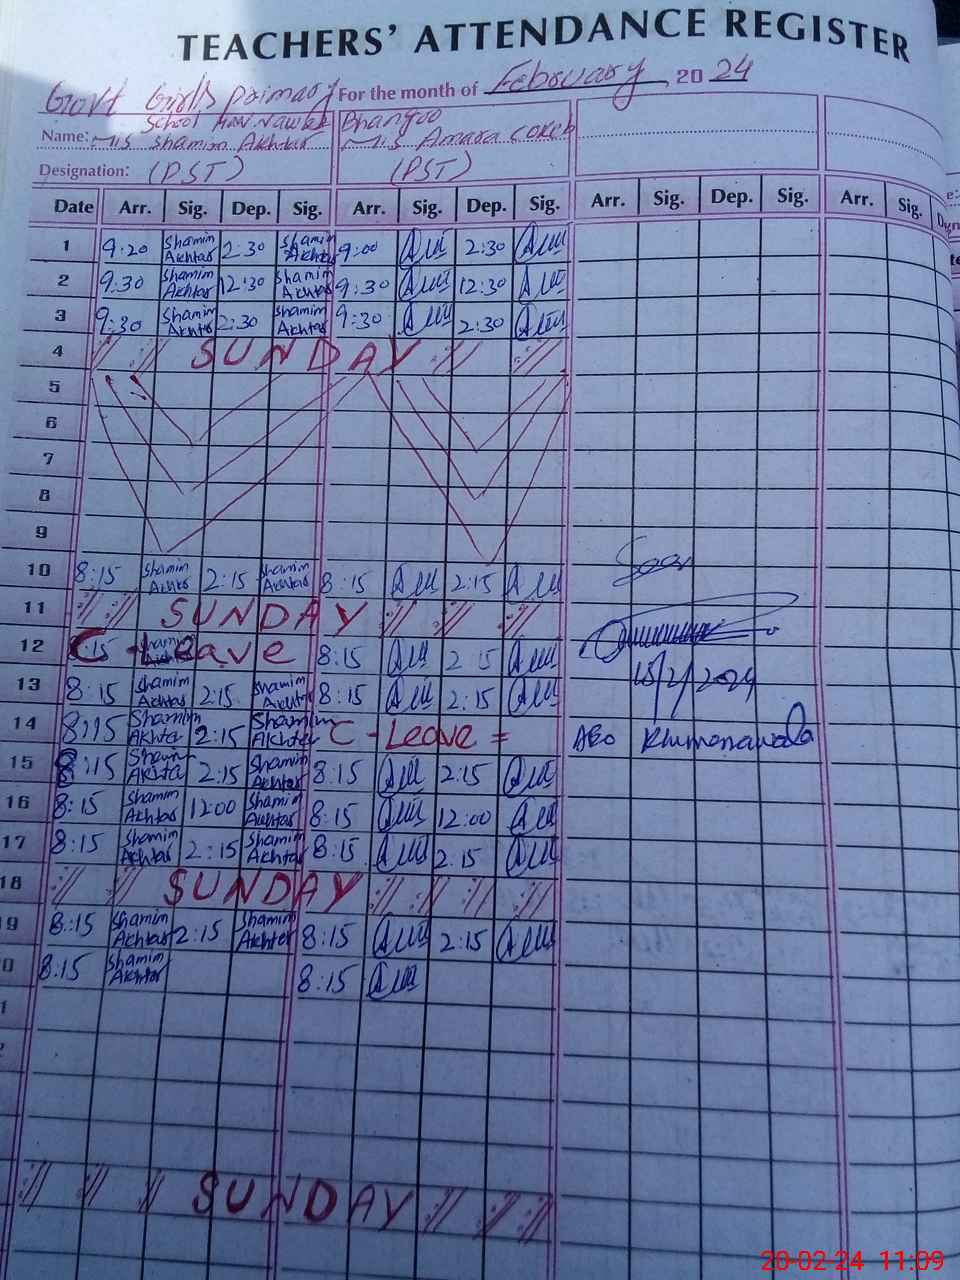 TEACHERS' ATTENDANCE REGISTER
Govt Girls primary For the month of February 2024
School Nawab Bhangoo
Name: Mis Shamim Akhtar Mis Amara
Designation: (PST) (PST)
Date Arr. Sig. Dep. Sig. Arr. Sig. Dep. Sig. Arr. Sig. Dep. Sig. Arr. Sig.
1 9:20 Shamim Akhtar 2:30 Shamim Akhtar 9:00 2:30
2 9:30 Shamim Akhtar 12:30 Shamim Akhtar 9:30 12:30
3 9:30 Shamim Akhtar 2:30 Shamim Akhtar 9:30 2:30
4 SUNDAY
5
6
7
8
9
10 8:15 Shamim Akhtar 2:15 Shamim Akhtar 8:15 2:15
Seen
11 SUNDAY
12 C-Leave 8:15 2:15
13 8:15 Shamim Akhtar 2:15 Shamim Akhtar 8:15 2:15 15/2/2024
14 8:15 Shamim Akhtar 2:15 Shamim Akhtar C-Leave =
15 8:15 Shamim Akhtar 2:15 Shamim Akhtar 8:15 2:15
16 8:15 Shamim Akhtar 12:00 Shamim Akhtar 8:15 12:00
17 8:15 Shamim Akhtar 2:15 Shamim Akhtar 8:15 2:15
18 SUNDAY
9 8:15 Shamim Akhtar 2:15 Shamim Akhtar 8:15 2:15
0 8:15 Shamim Akhtar 8:15
SUNDAY
20-02-24 11:09